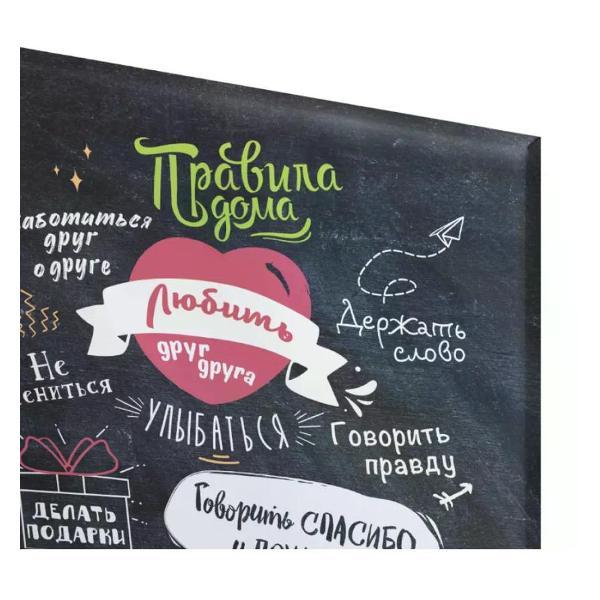 Правила
дома
аботиться
друг
о друге
Любить
друг
друга
Держать
слово
Не
ениться
УЛЫБАТЬСЯ
Говорить
правду
ДЕЛАТЬ
ПОДАРКИ
Говорить СПАСИБО
и